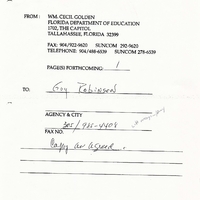 FROM: WM. CECIL GOLDEN
FLORIDA DEPARTMENT OF EDUCATION
1702, THE CAPITOL
TALLAHASSEE, FLORIDA 32399
FAX: 904/922-9620 SUNCOM 292-9620
TELEPHONE: 904/488-6539 SUNCOM 278-6539
PAGE(S) FORTHCOMING: 1
TO: Guy Robinson
AGENCY & CITY
305/935-4409
FAX NO.
Copy as agreed.